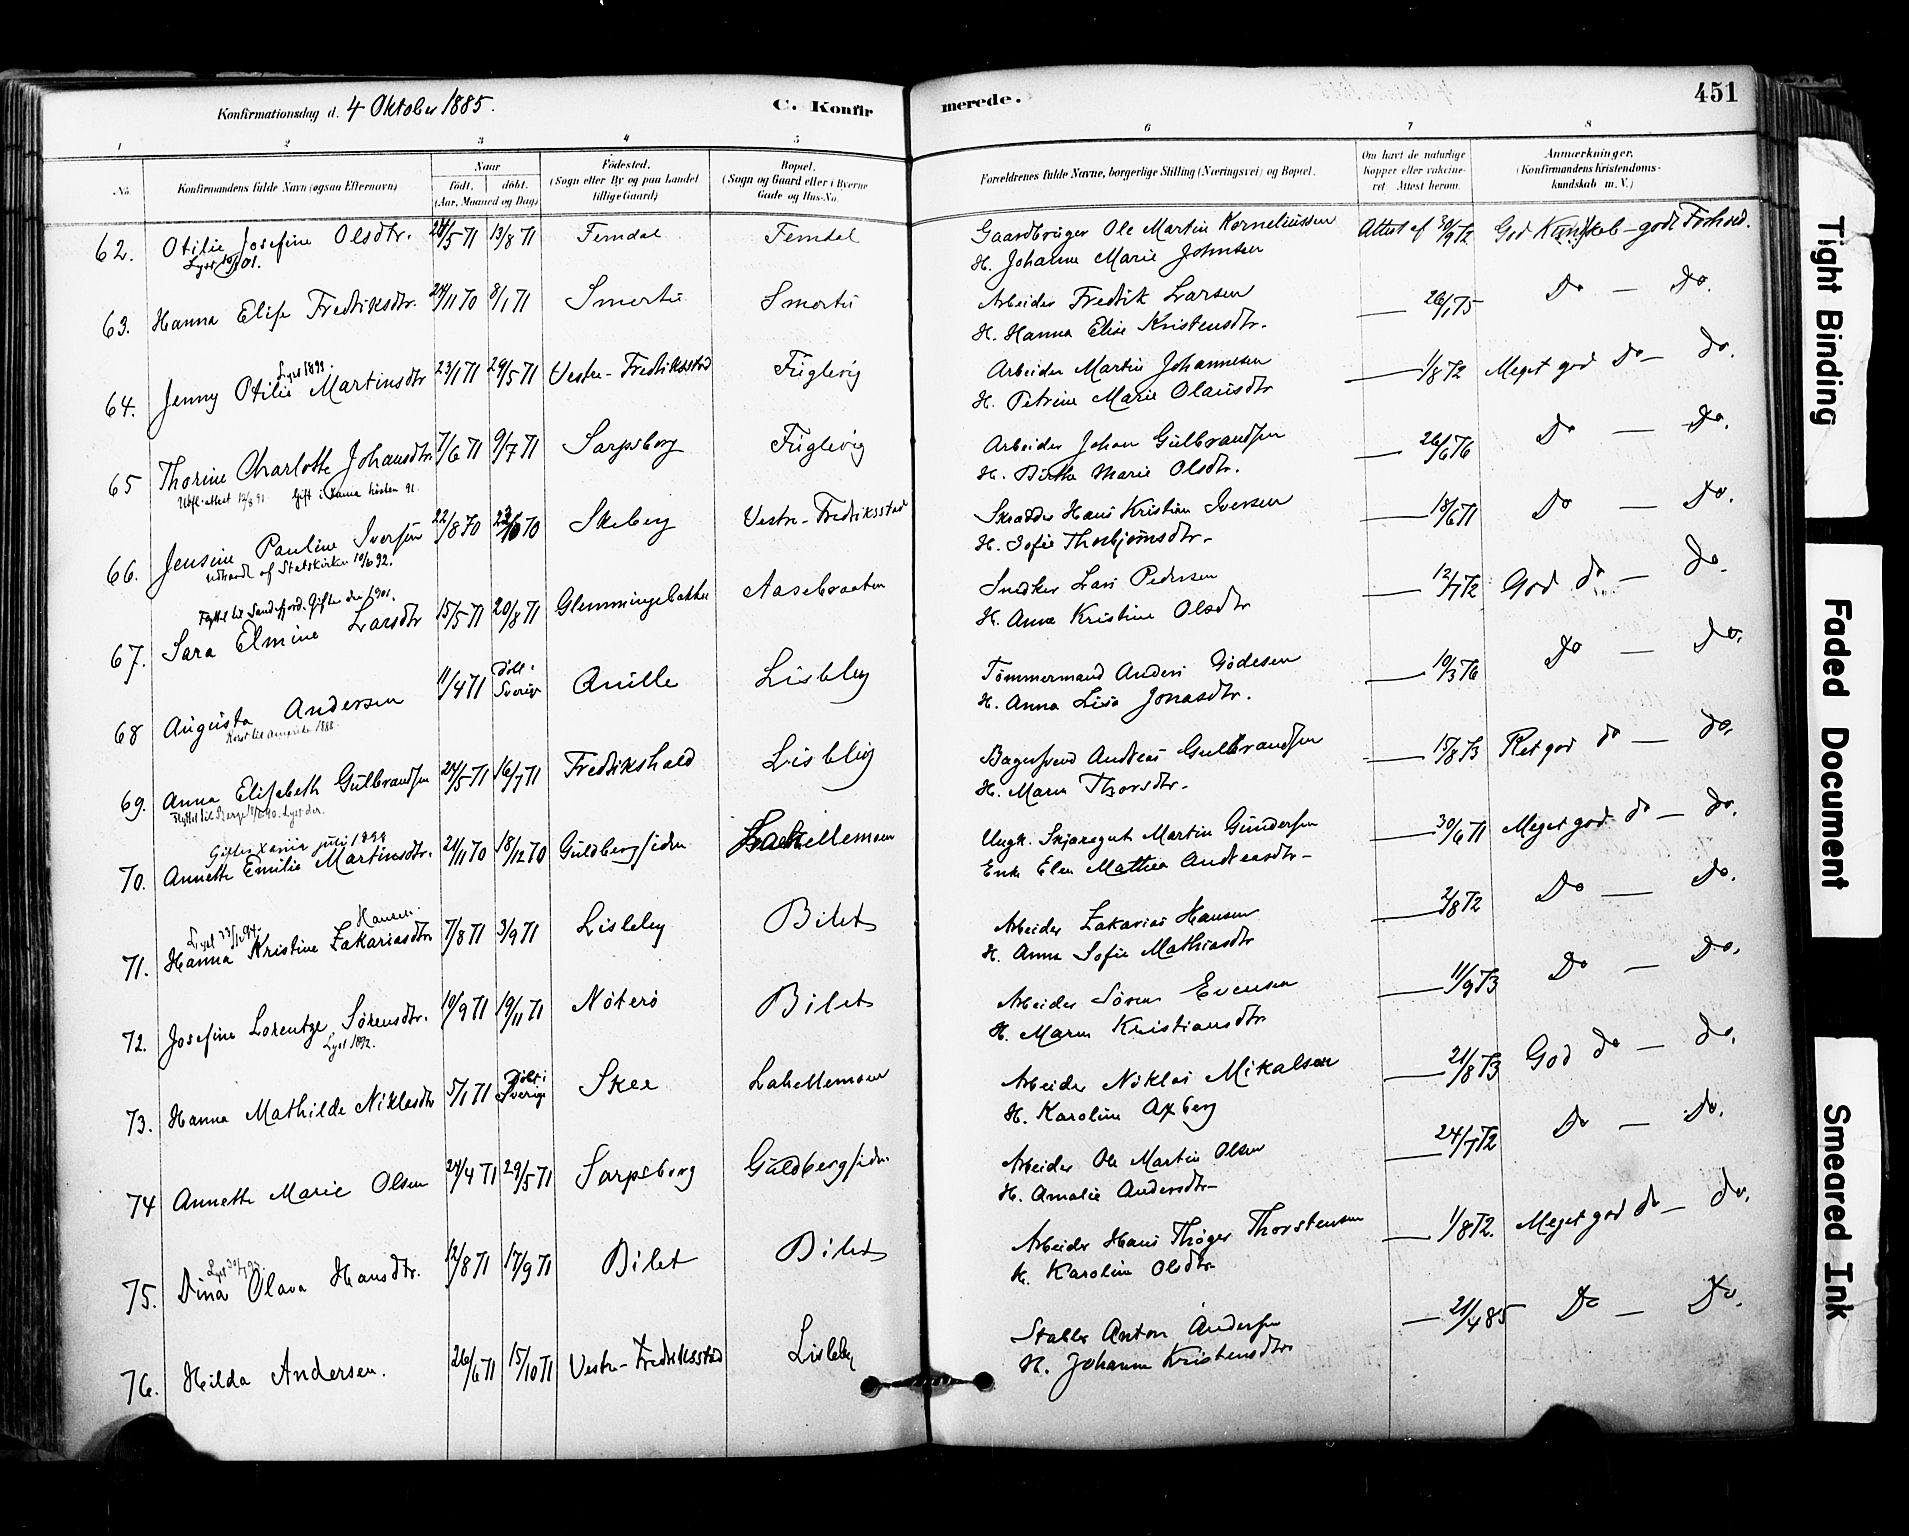 Konfirmationsdag d. 4 Oktober 1885. C. Konfir
merede. 451
1 2 3 4 5 6 7 8
No. Konfirmandens fulde Navn (ogsaa Efternavn) Naar født. døbt. (Aar, Maaned og Dag) Fødested. (Sogn eller By og paa Landet tillige Gaard) Bopæl. (Sogn og Gaard eller i Byerne Gade og Hus-No.
Forældrenes fulde Navne, borgerlige Stilling (Næringsvei) og Bopæl. Om havt de naturlige Kopper eller vakcineret. Attest herom. Anmærkninger. (Konfirmandens Kristendomskundskab m. V.)
62. Otilie Josefine Olsdtr. 24/5 71 13/8 71 Femdal Femdal Gaardbruger Ole Martin Korneliussen Attest af 30/9 72 God Kundskab – godt Forhold.
H. Johanne Marie Johnsen
63. Hanna Elise Fredriksdtr. 24/11 70 8/1 71 Smertu Smertu Arbeider Fredrik Larsen — 26/1 75 Do — Do.
H. Hanna Elise Kristensdtr.
Lyst 1899.
64. Jenny Otilie Martinsdtr 23/1 71 29/5 71 Vestre-Fredriksstad Fuglevig Arbeider Martin Johannesen — 1/8 72 Meget god Do — Do.
H. Petrine Marie Olausdtr
65 Thorine Charlotte Johansdtr 7/6 71 9/7 71 Sarpsborg Fuglevig Arbeider Johan Gulbrandsen — 26/6 76 Do — Do.
Udfl. attest 12/8 91 Gift i Xania høsten 91. H. Birthe Marie Olsdtr.
66. Jensine Pauline Iversen 22/8 70 70 Skeberg Vestre-Fredriksstad Skrædder Hans Kristian Iversen — 18/6 71 Do — Do.
udtraadt af Statskirken 10/6 92. H. Sofie Thorbjørnsdtr.
Flyttet til Sandefjord. Giftes der 1901.
67. Sara Elmine Larsdtr 15/5 71 20/8 71 Glemmingebakken Aasebraaten Snedker Lars Pedersen — 12/7 72 God do — Do.
H. Anna Kristine Olsdtr
68 Augusta Andersen 11/4 71 Døbt i Sverige Quille Lisleby Tømmermand Anders Gødesen — 10/3 76 Do — Do.
Reist til Amerika 1888. H. Anna Lisa Jonasdtr.
69. Anna Elisabeth Gulbrandsen 24/5 71 16/7 71 Fredrikshald Lisleby Bagersvend Andreas Gulbrandsen — 15/8 73 Ret god do — Do.
H. Maren Thorsdtr.
Giftes Xania juli 1899
70. Annette Emilie Martinsdtr. 21/11 70 18/12 70 Guldbergsiden Lahellemoen Ungk. Skjæregut Martin Gundersen — 30/6 71 Meget god do — do.
Enke Elen Mathea Andreasdtr
Hansen.
71. Hanna Kristine Zakariasdtr 7/8 71 3/9 71 Lisleby Bilet Arbeider Zakarias Hansen — 2/8 72 Do — Do.
H. Anna Sofie Mathiasdtr
72. Josefine Lorentze Sørensdtr. 10/9 71 19/11 71 Nøterø Bilet Arbeider Søren Evensen — 11/9 73 Do — Do.
Lyst 1892. H. Maren Kristiansdtr
73. Hanna Mathilde Niklasdtr 5/1 71 Døbt i Sverige Skee Lahellemoen Arbeider Niklas Mikalsen — 21/8 73 God do — do.
H. Karoline Axberg
74 Annette Marie Olsen 24/4 71 29/5 71 Sarpsborg Guldbergsiden Arbeider Ole Martin Olsen — 24/7 72 Do — Do.
H. Amalie Andersdtr
75. Dina Olava Hansdtr. 12/8 71 17/9 71 Bilet Bilet Arbeider Hans Thøger Thorstensen — 1/8 72. Meget god do — do.
H. Karoline Olsdtr
76. Hilda Andersen. 26/6 71 15/10 71 Vestre-Fredriksstad Lisleby Stabler Anton Andersen — 21/4 85 Do — Do.
H. Johanne Kristensdtr
Tight Binding
Faded Document
Smeared Ink